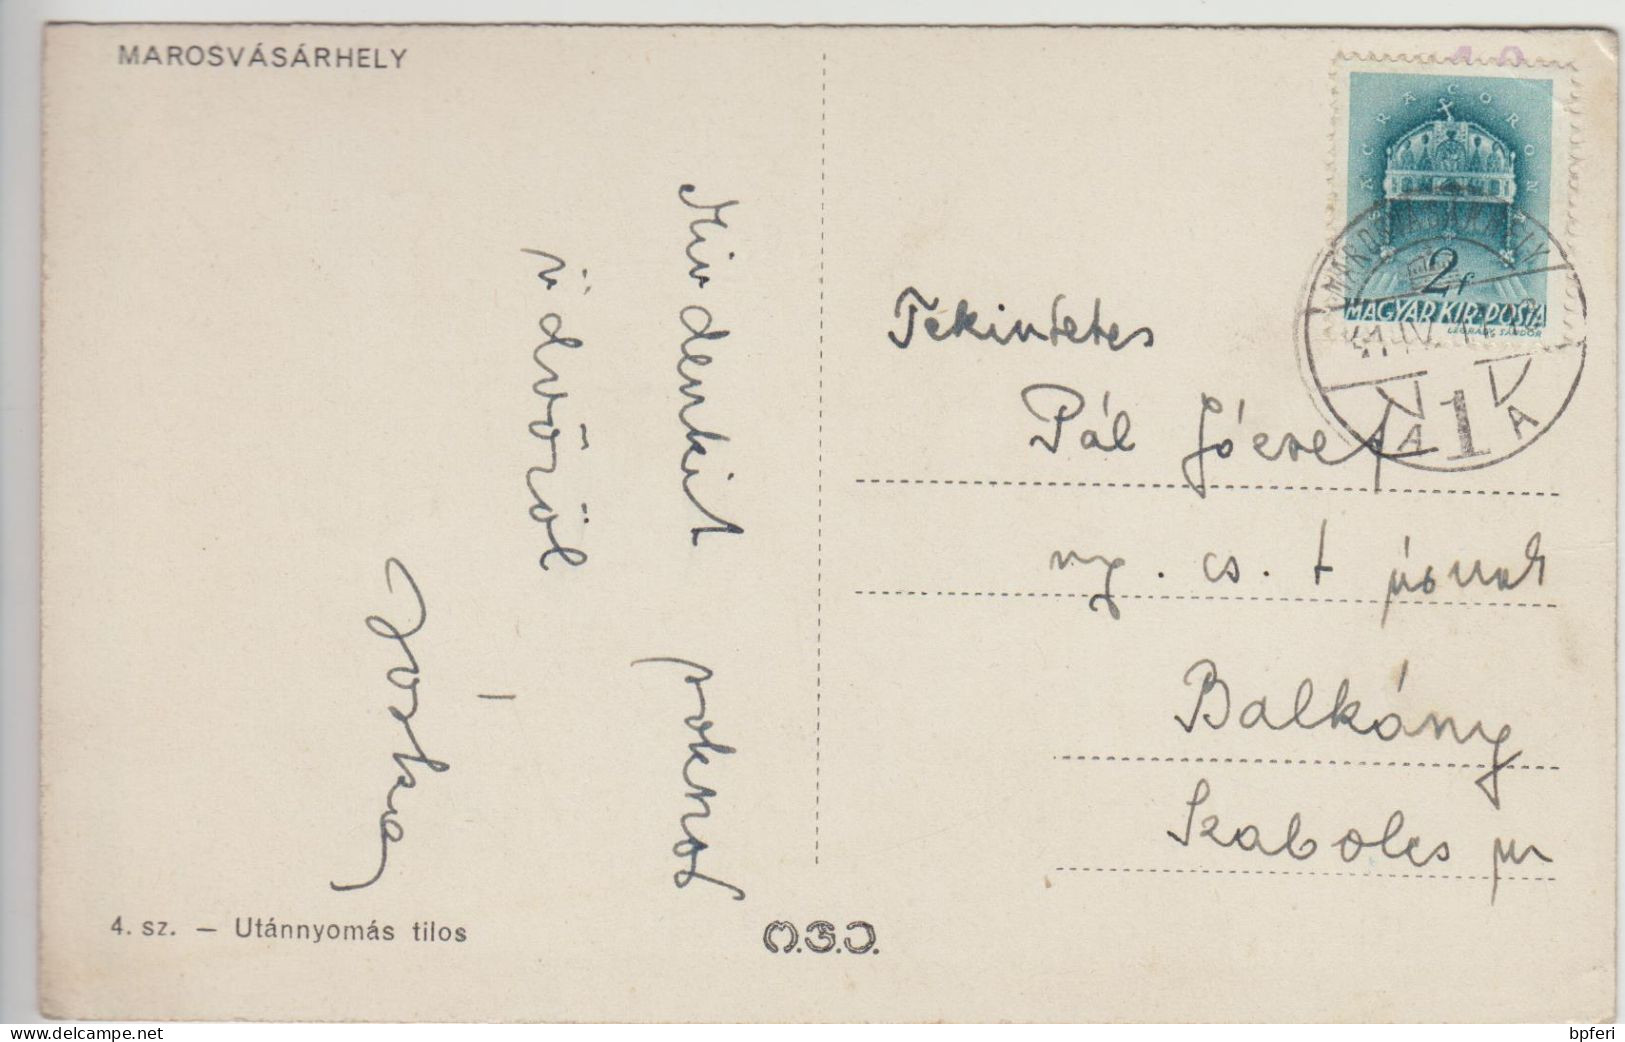 MAROSVÁSÁRHELY
Mindenkit sokszor
üdvözöl
Jóska
4. sz. — Utánnyomás tilos
M.B.O.
SACRA CORONA
2f
MAGYAR KIR. POSTA
LÉGRÁDY SÁNDOR
MAROSVÁSÁRHELY
41 IV.
A 1 A
Tekintetes
Pál József
ny. cs. t
Balkány
Szabolcs m
www.delcampe.net
bpferi